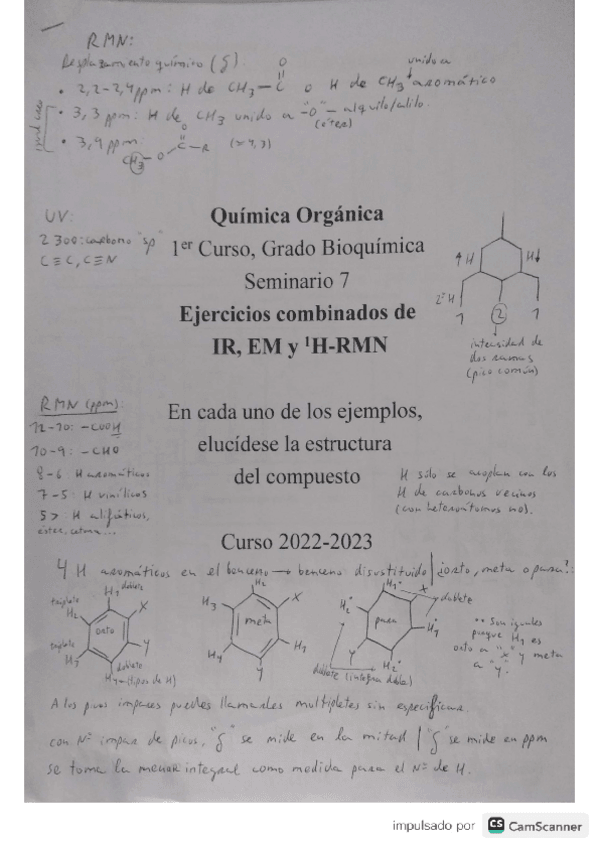 RMN:
Desplazamiento químico (δ):
• 2,2-2,4 ppm: H de CH3-C o H de CH3 aromático
O
unido a
• 3,3 ppm: H de CH3 unido a -"O"- alquilo/alilo.
(éter)
• 3,9 ppm
CH3-O C-R (≈4,3)
O
UV:
2300: carbono "sp"
C≡C, C≡N
Química Orgánica
1er Curso, Grado Bioquímica
Seminario 7
Ejercicios combinados de
IR, EM y 1H-RMN
1H H1
2H
1 2 1
intensidad de
dos ramas
(pico común)
RMN (ppm):
12-10: -COOH
10-9: -CHO
8-6 H aromáticos
7-5: H vinílicos
5> H alifáticos,
éster,
En cada uno de los ejemplos,
elucídese la estructura
del compuesto
H sólo se acoplan con los
H de carbonos vecinos
(con heteroátomos no).
Curso 2022-2023
4 H aromáticos en el benceno → benceno disustituido ¿orto, meta o para?:
triplete H2 H1 doblete X orto Y
triplete H3 doblete H4 (tipos de H)
H2 H3 X meta H4 Y H1
H2 H1 X para Y H2 H1
doblete
doblete (integra doble)
** Son iguales
porque H1 es
orto a "x" y meta
a "y".
A los picos impares puedes llamarles multipletes sin especificar.
con Nº impar de picos, "δ" se mide en la mitad | δ se mide en ppm
se toma la menor integral como medida para el Nº de H.
impulsado por CS CamScanner